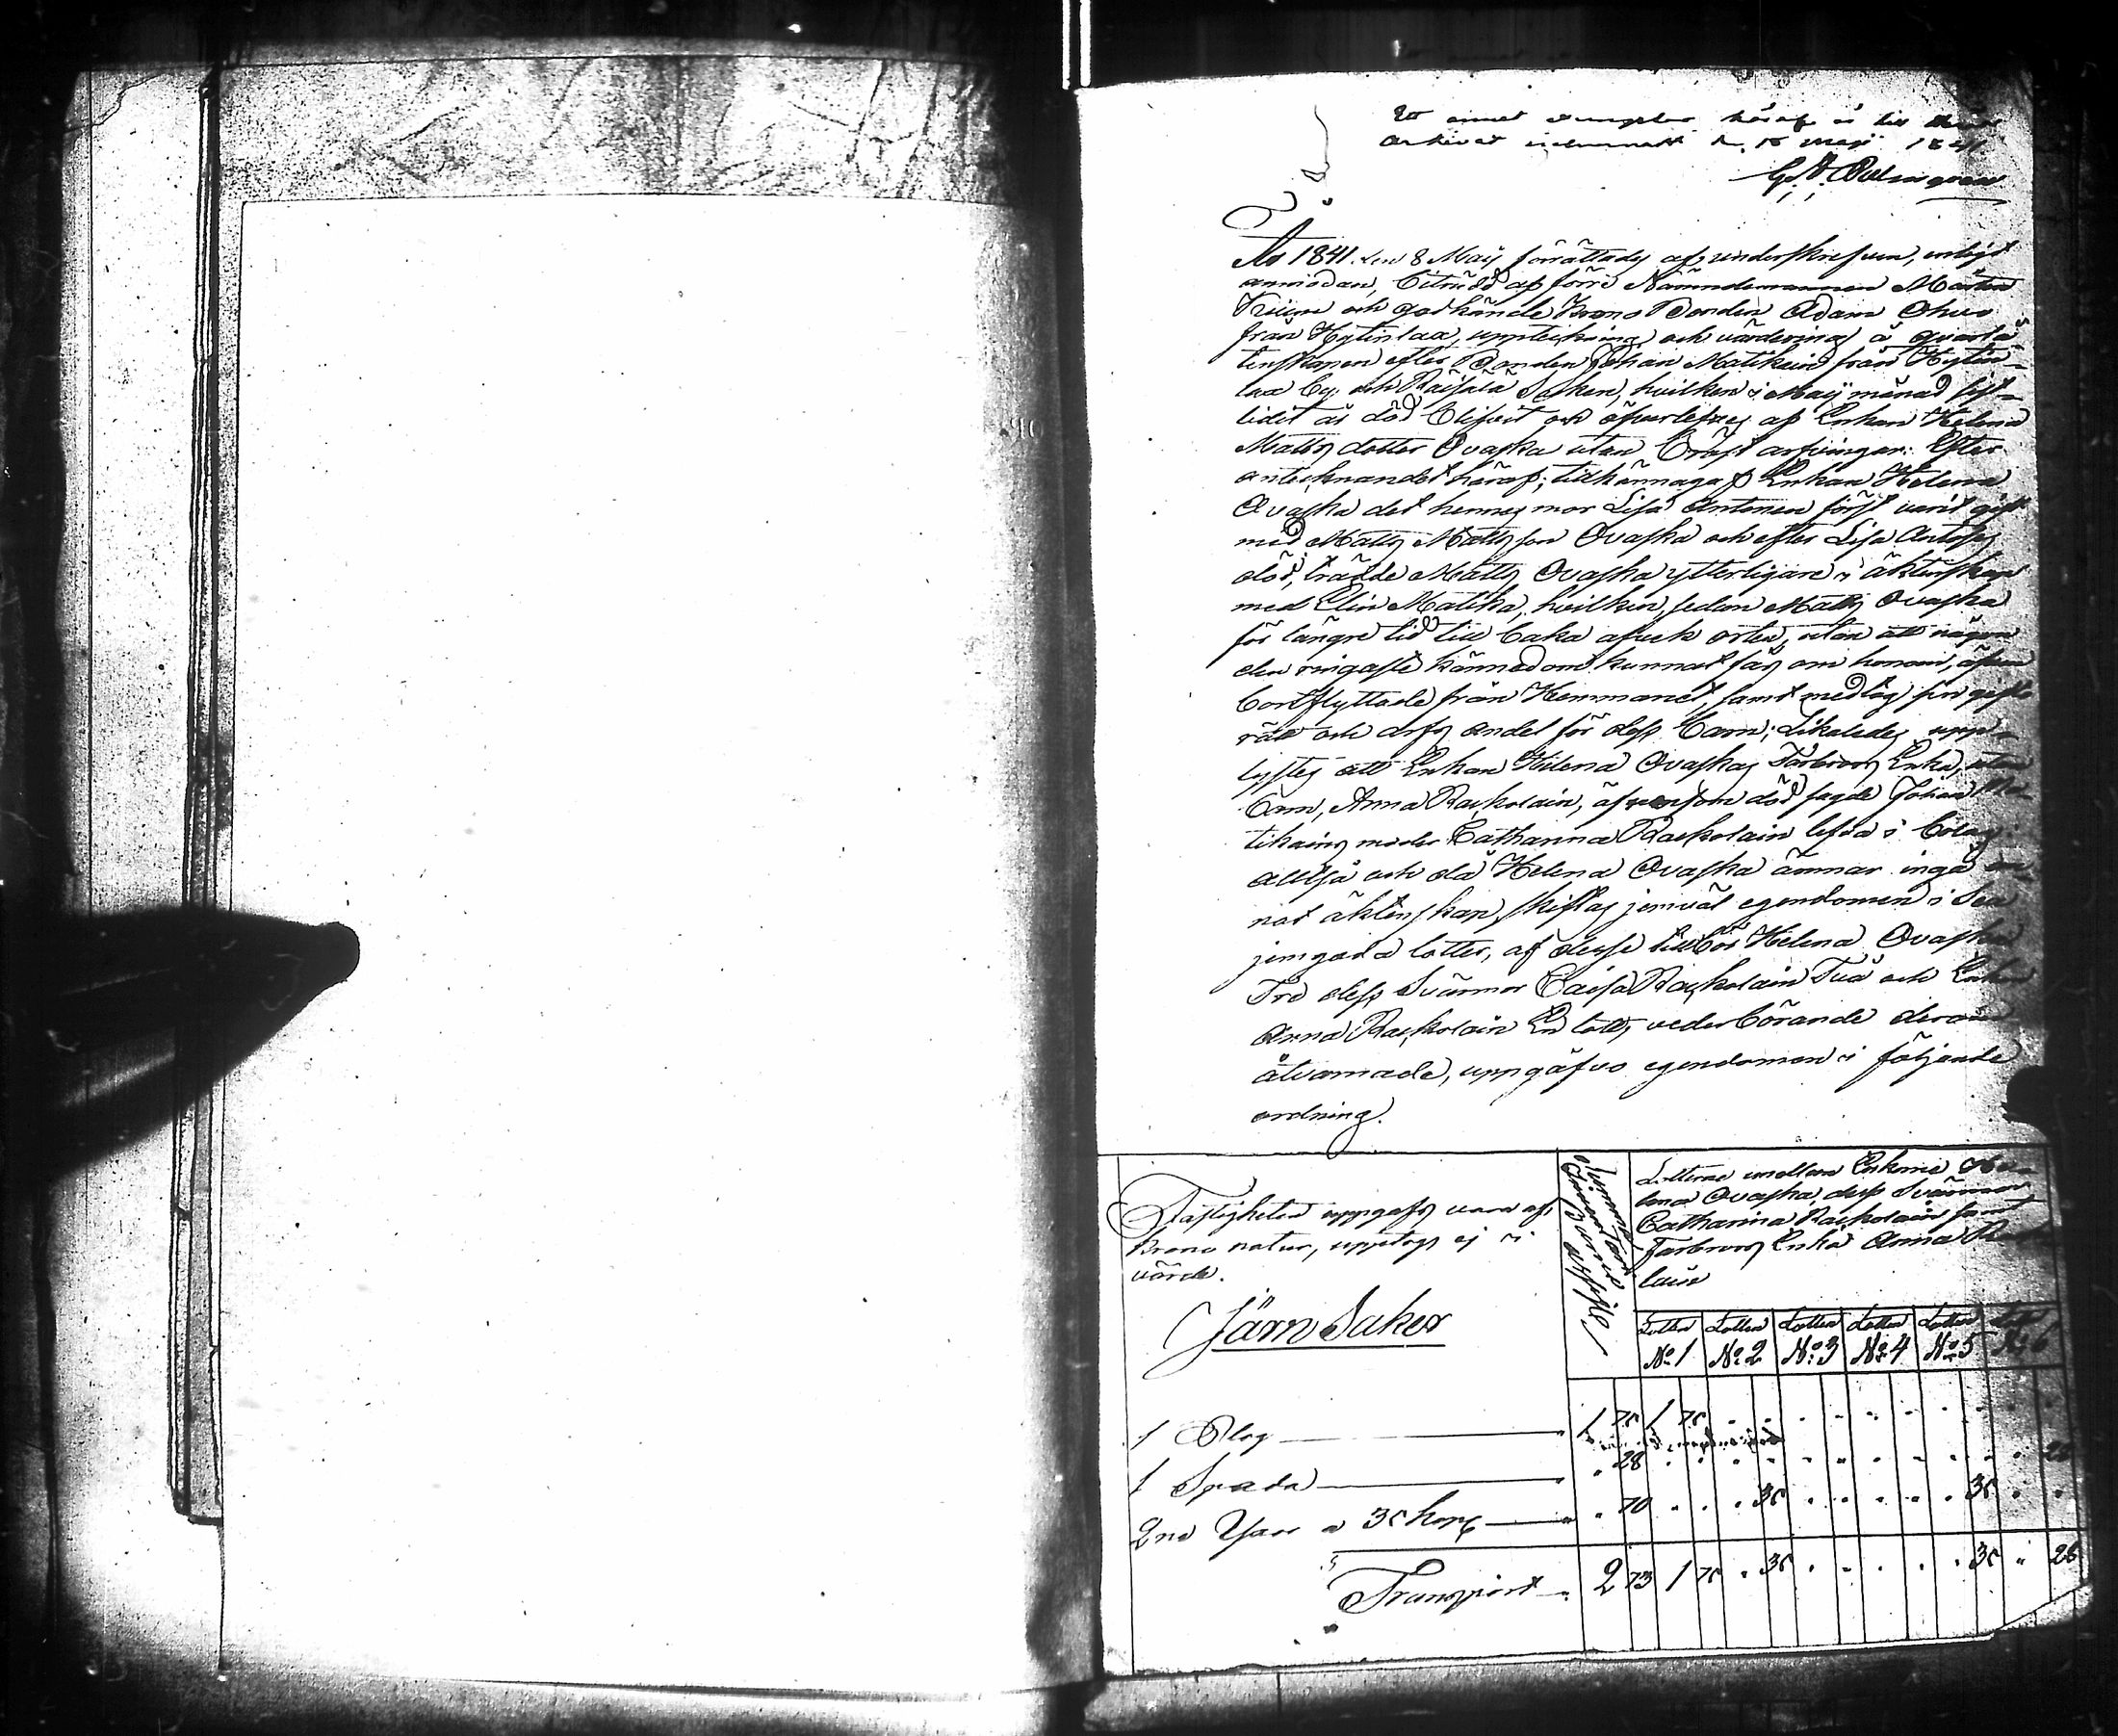 Ett annat exemplar häraf är till
Arkivet inlemnadt d. 15 Maji 1841.
År 1841. den 8 Maij förrättades af undershrefven, enligt
anmodan, biträdd af förre Nämndemannen Mårten
och godkände Krono Bonden Adam
från Hytinlax, uppteckning och värdering å qvarlå-
tenskapen efter Bonden Johan Matikain från Hytin-
lax by och Räisälä Soken, hvilken i Maij månad sist-
lidit år död blifvit och öfverlefves af Enkan Helena
Matts dotter Ovaska utan bröst arfvingar: Efter
antecknandet häraf, tillkännagaf Enkan Helena
Ovaska det hennes mor Lisa Antonen först varit gift
med Matts Mattsson Ovaska och efter Lisa
död, trädde Matts Ovaska ytterligare i äktenskap
med Elin Matika, hvilken, sedan Matts Ovaska
för längre tid till baka afvek orten, utan att någon
den ringaste kännedom kunnat fås om honom, äfven
bortflyttade från Hemmanet, samt medtog sin gifto
rätt och arfs andel för dess barn; Likaledes upp-
lystes att Enkan Helena Ovaskas Farbrors Enka, utan
barn, Anna Raskolain, äfvensom död sagde Johan Ma-
tikains moder Catharina Raskolain lefva i bolag:
alltså och då Helena Ovaska ämnar ingå an-
nat äktenskap, skiftas jemväl egendomen i Sex
jemgoda lotter, af desse tillhör Helena Ovaska
Tre dess Svärmor Caisa Raskolain Två och Enkan
Anna Raskolain En lott, vederbörande derom
åtvarnade, uppgåfvo egendomen i följande
ordning.
Fastigheten uppgafs vara af
Krono natur, upptogs ej i
värde.
Järn Saker
Lotterne emellan Enkorne He-
lena Ovaska, dess Svärmor
Catharina Raskolain samt
Farbrors Enka Anna Rasko
lain
Lotten Lotten Lotten Lotten Lotten
No 1 No 2 No 3 No 4 No 5 No 6
1 Plog 1 75 1 75
1 Spada " 28 28
2ne Yxor a 35 kop " 70 " 35 " 35
Transport 2 73 1 75 " 35 " 35 " 28